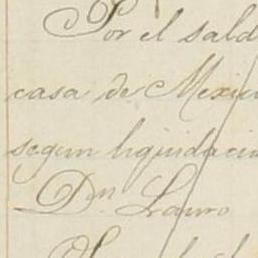 Por el sald
casa de Mexic
segun liquidacio
Dn Lauro